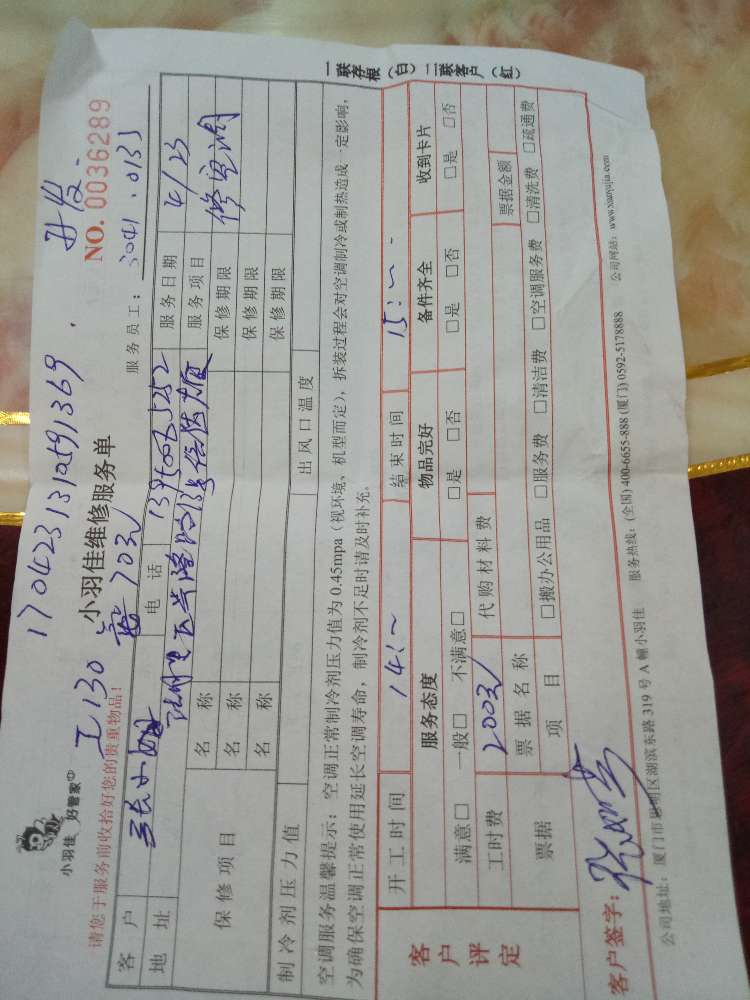 1704231310591369.
小羽佳 好管家
小羽佳维修服务单
NO. 0036289
请您于服务前收拾好您的贵重物品!
服务员工: 3041.0133
客户 电话 服务日期 4/23
地址 服务项目 修空调
保修项目 名称 保修期限
名称 保修期限
名称 保修期限
制冷剂压力值 出风口温度
空调服务温馨提示:空调正常制冷剂压力值为0.45mpa(视环境、机型而定),拆装过程会对空调制冷或制热造成一定影响,
为确保空调正常使用延长空调寿命,制冷剂不足时请及时补充。
一联存根(白)二联客户(红)
开工时间 14:~ 结束时间 15:~
客户评定
服务态度 物品完好 备件齐全 收到卡片
满意□ 一般□ 不满意□ □是 □否 □是 □否 □是 □否
工时费 200元 代购材料费
票据 票据名称 票据金额
项目 □搬办公用品 □服务费 □清洁费 □空调服务费 □清洗费 □疏通费
客户签字:
公司地址:厦门市思明区湖滨东路319号A幢小羽佳 服务热线:(全国)400-6655-888(厦门)0592-5178888 公司网站:www.xiaoyujia.com